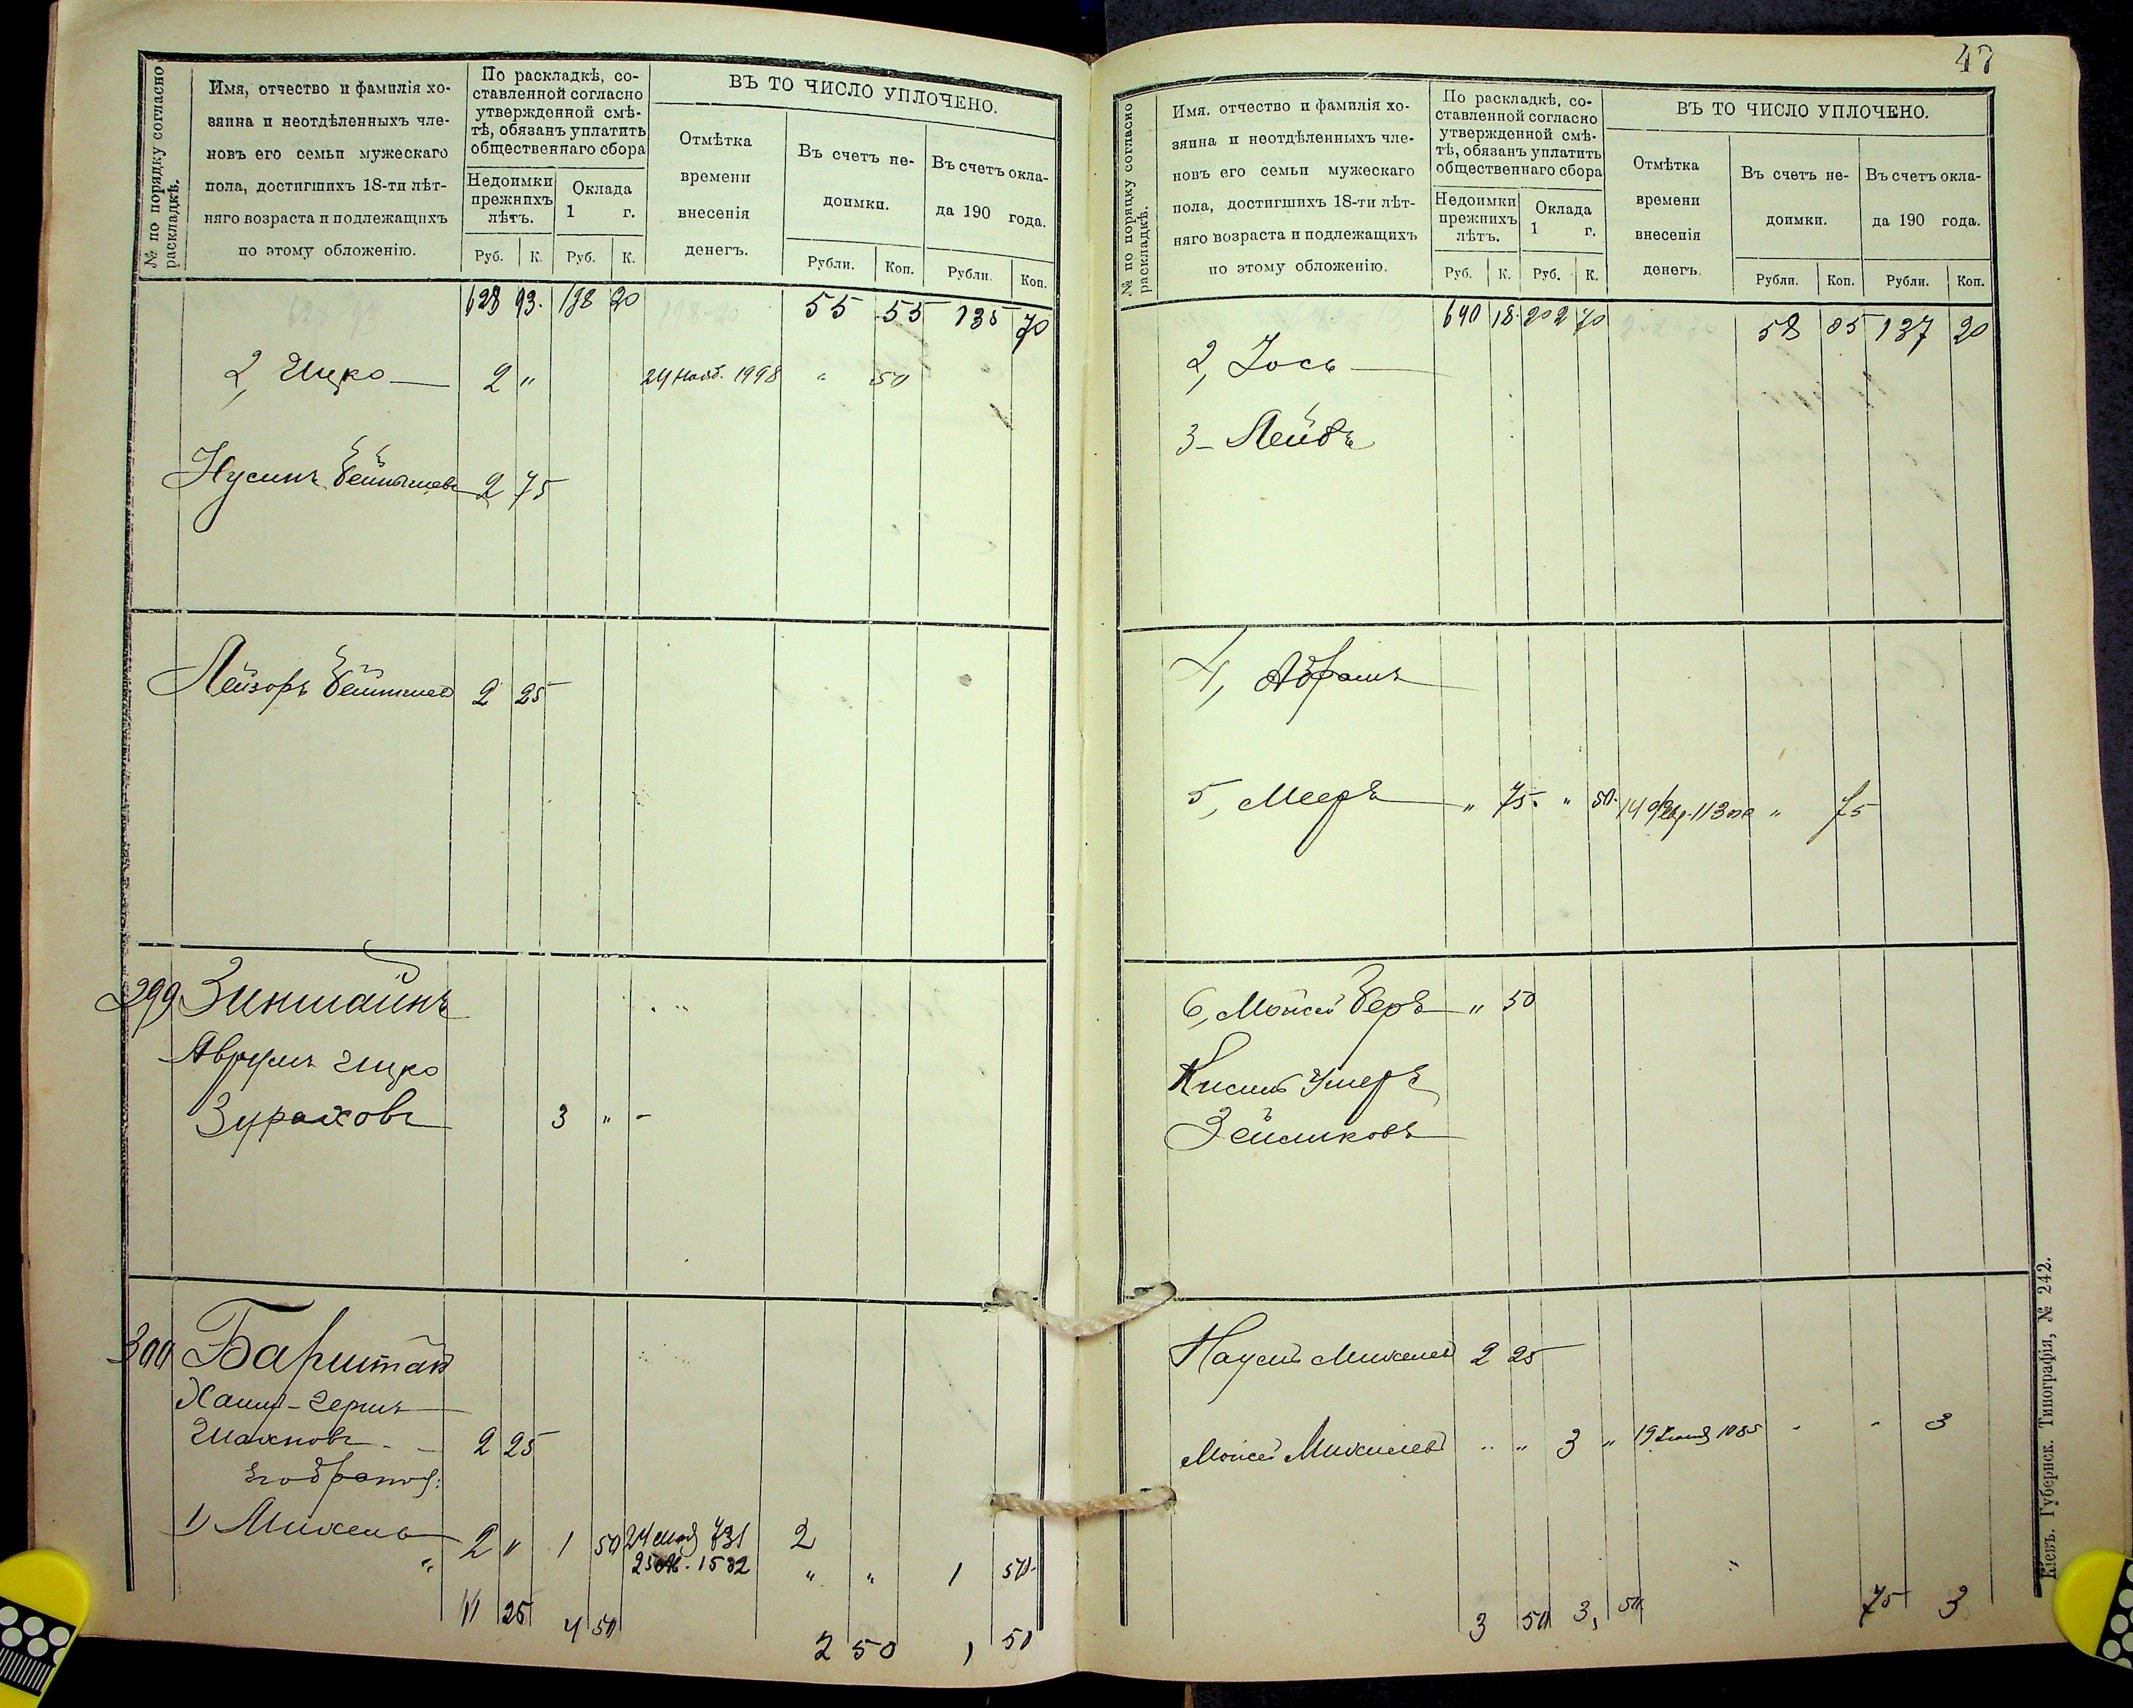 № по порядку согласно раскладкѣ.
Имя, отчество и фамилія хо-
зяина и неотдѣленныхъ чле-
новъ его семьи мужескаго
пола, достигшихъ 18-ти лѣт-
няго возраста и подлежащихъ
по этому обложенію.
По раскладкѣ, со-
ставленной согласно
утвержденной смѣ-
тѣ, обязанъ уплатить
общественнаго сбора
Недоимки
прежнихъ
лѣтъ.
Оклада
1 г.
Руб. К. Руб. К.
ВЪ ТО ЧИСЛО УПЛОЧЕНО.
Отмѣтка
времени
внесенія
денегъ.
Въ счетъ не-
доимки.
Рубли. Коп.
Въ счетъ окла-
да 190 года.
Рубли. Коп.
628 93. 198 20 55 55 135 70
2, Ицко 2 " 24 Нояб. 1998 " 50
Нусинъ Бейнышевъ 2 75
Лейзоръ Бейнышев 2 25
299 Зинштайнъ
Аврумъ Ицко
Зураховъ 3 " -
300 Барштак
Хаим-Герш
Шахновъ 2 25
1) Михель 2 " 1 50 24 731 2
1582 " " 1 50
11 25 4 50 2 50 1 50
47
№ по порядку согласно раскладкѣ.
Имя. отчество и фамилія хо-
зяина и неотдѣленныхъ чле-
новъ его семьи мужескаго
пола, достигшихъ 18-ти лѣт-
няго возраста и подлежащихъ
по этому обложенію.
По раскладкѣ, со-
ставленной согласно
утвержденной смѣ-
тѣ, обязанъ уплатить
общественнаго сбора
Недоимки
прежнихъ
лѣтъ.
Оклада
1 г.
Руб. К. Руб. К.
ВЪ ТО ЧИСЛО УПЛОЧЕНО.
Отмѣтка
времени
внесенія
денегъ.
Въ счетъ не-
доимки.
Рубли. Коп.
Въ счетъ окла-
да 190 года.
Рубли. Коп.
640 18 202 70 58 05 137 20
2, Іось
3- Лейбъ
4, Абрамъ
5, Мееръ " 75. " 50. 14 " 75
6, Мойсей Беръ " 50
Кисиль Умеръ
Зейликовъ
Наумъ Михелев 2 25
Мойсей Михилевъ " " 3 " 19 1085 " " 3
3 50 3, 50 75 3
Кіевъ. Губернск. Типографія, № 242.